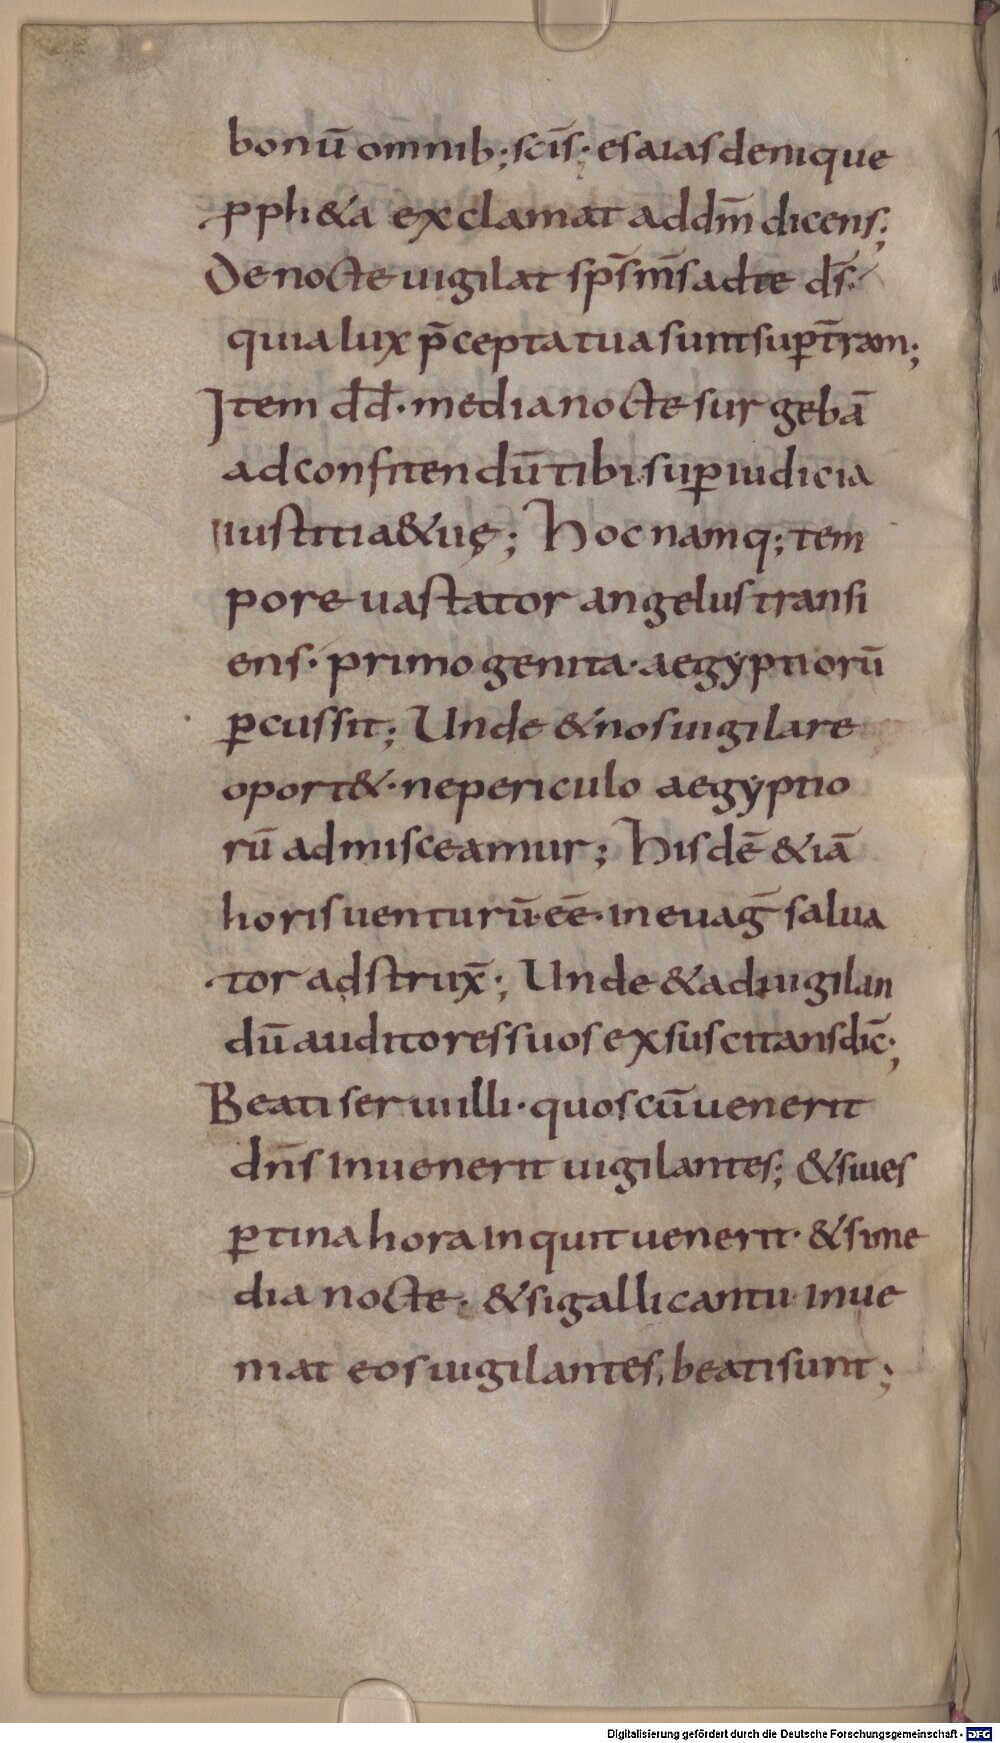 bonū om̄nib; scīs; esaias denique
pph&a exclamat ad dm̄ dicens;
De nocte uigilat sps̄ ms̄ ad te ds̄.
quia lux p̄cepta tua sunt sup t̄ram;
Item dd̄. media nocte surgebā
ad confitendū tibi sup iudicia
iustitiae & uę; Hoc namq; tem
pore uastator angelus transi
ens. primogenita. aegyptiorū
pcussit; Unde & nos uigilare
oport&. ne periculo aegyptio
rū admisceamur; His dē & iā
horis uenturū. eē. in euaḡ salua
tor adstrux̄; Unde & ad uigilan
dū auditores suos exsuscitans dic̄;
Beati serui illi. quos cū uenerit
dn̄s inuenerit uigilantes; & si ues
ptina hora inquit uenerit. & si me
dia nocte. & si galli cantu inue
niat eos uigilantes, beati sunt;
Digitalisierung gefördert durch die Deutsche Forschungsgemeinschaft - DFG